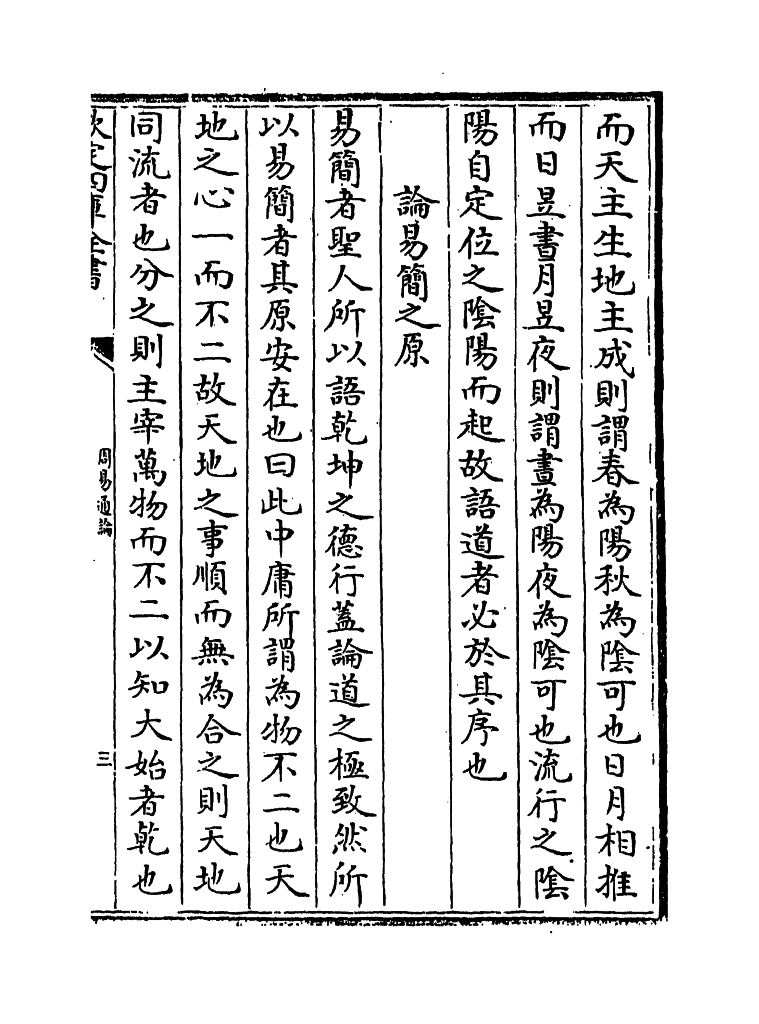 而天主生地主成則謂春為陽秋為陰可也日月相推
而日昱晝月昱夜則謂晝為陽夜為陰可也流行之陰
陽自定位之陰陽而起故語道者必於其序也
論易簡之原
易簡者聖人所以語乾坤之德行蓋論道之極致然所
以易簡者其原安在也曰此中庸所謂為物不二也天
地之心一而不二故天地之事順而無為合之則天地
同流者也分之則主宰萬物而不二以知大始者乾也
欽定四庫全書
周易通論
三